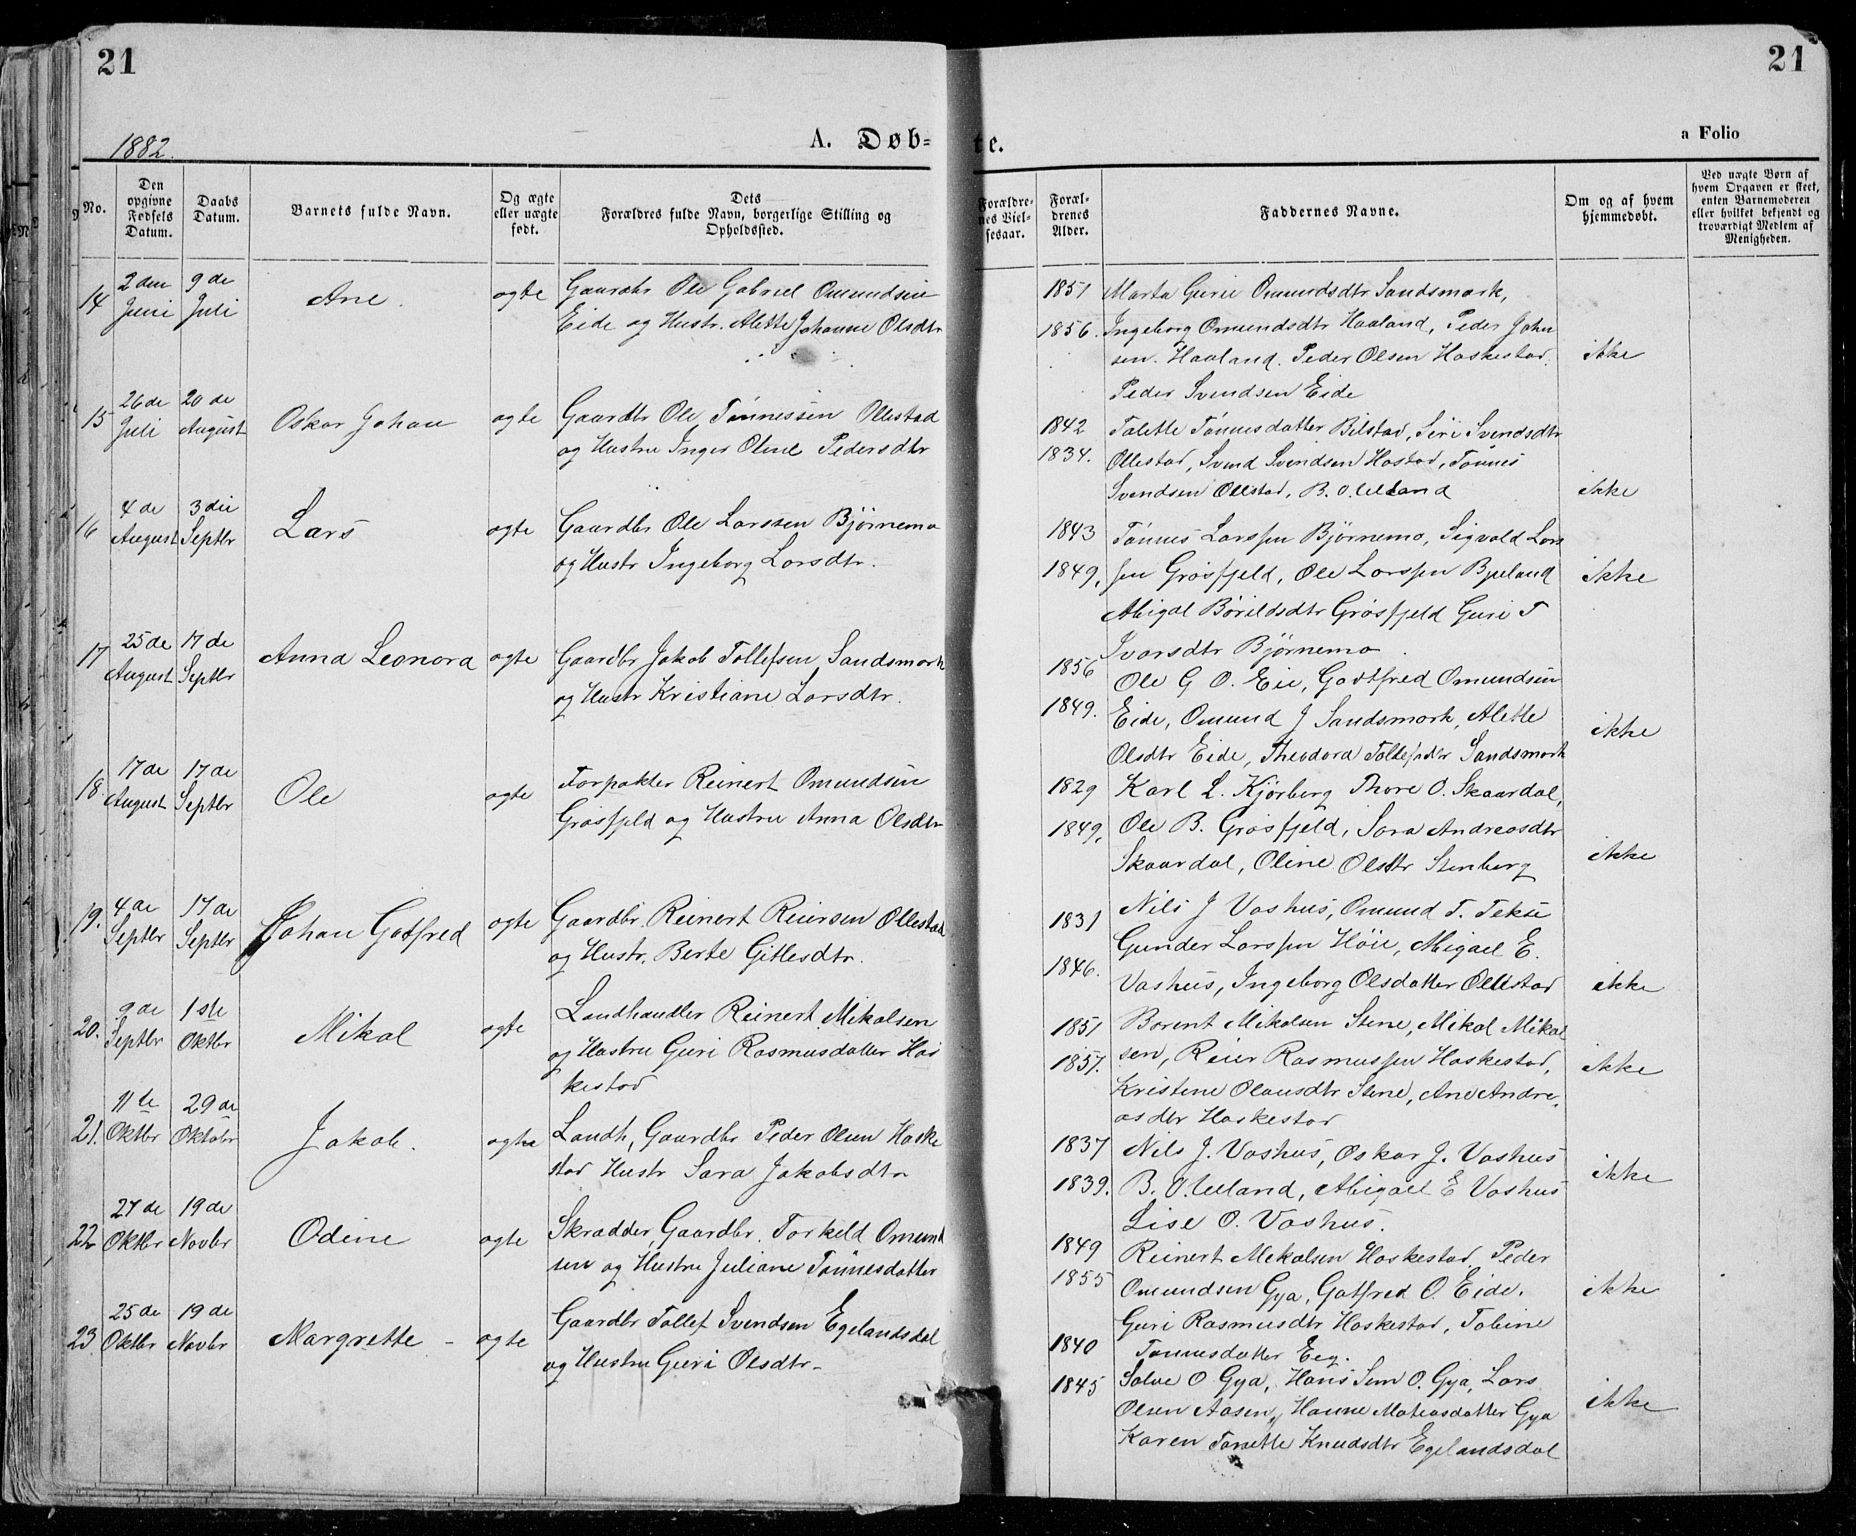 21
21
1882.
A. Døb-
te.
a Folio
No.
Den opgivne Fødsels Datum.
Daabs Datum.
Barnets fulde Navn.
Og ægte eller uægte født.
Dets Forældres fulde Navn, borgerlige Stilling og Opholdssted.
Forældrenes Vielsesaar.
Forældrenes Alder.
Faddernes Navne.
Om og af hvem hjemmedøbt.
Ved uægte Børn af hvem Opgaven er skeet, enten Barnemoderen eller hvilket bekjendt og troværdigt Medlem af Menigheden.
14 2den Juni 9de Juli Ane. ægte Gaardbr Ole Gabriel Omundsen
Eide og Hustr. Alette Johanne Olsdtr
1851 1856.
Marta Gurie Omundsdtr Sandsmark,
Ingeborg Omundsdtr Haaland, Peder John
sen. Haaland. Peder Olsen Haskestad.
Peder Svendsen Eide
ikke
15 26de Juli 20de August Oskar Johan ægte Gaardbr Ole Tønnessen Ollestad
og Hustru Inger Oline Pedersdtr
1842 1834.
Talette Tønnesdatter Bilstad, Siri Svendsdtr
Ollestad, Svend Svendsen Hastad, Tønnes
Svendsen Ollestad, B. O. Ueland
ikke
16 4de August 3die Septbr Lars ægte Gaardbr Ole Larssen Bjørnemo
og Hustr Ingeborg Larsdtr.
1843 1849,
Tønnes Larssen Bjørnemo, Sigvald Lars
sen Grøsfjeld, Ole Larssen Bjuland
Abigal Børildsdtr Grøsfjeld Guri T
Ivarsdtr Bjørnemo.
ikke
17 25de August 17de Septbr Anna Leonora ægte Gaardbr Jakob Tollefsen Sandsmark
og Hustr Kristiane Larsdtr.
1856 1849.
Ole G O. Eie, Godtfred Omundsen
Eide, Omund J Sandsmark, Alette
Olsdtr Eide, Theodora Tollefsdtr Sandsmark
ikke
18 17de August 17de Septbr Ole ægte Forpakter Reinert Omundsen
Grøsfjeld og Hustru Anna Olsdtr
1829 1849,
Karl L. Kjørberg Thore O. Skaardal,
Ole B. Grøsfjeld, Sara Andreasdtr
Skaardal, Oline Olsdtr Stenberg
ikke
19. 4de Septbr 17de Septbr Johan Gotfred ægte Gaardbr. Reinert Reiersen Ollestad
og Hustr. Berte Gitlesdtr.
1831 1846.
Nils J Vashus, Omund T. Tekse
Gunder Larssen Høie, Abigael E.
Vashus, Ingeborg Olsdatter Ollestad
ikke
20. 9de Septbr 1ste Oktbr Mikal ægte Landhandler Reinert Mikalsen
og Hustru Guri Rasmusdatter Has
kestad
1851 1857.
Borent Mikalsen Stene, Mikal Mikal
sen, Reier Rasmussen Haskestad,
Kristine Olausdtr Stene, Ane Andre,
asdtr Haskestad
ikke
21. 11te Oktbr 29de Oktobr Jakob. ægte Landh, Gaardbr Peder Olsen Haske
stad Hustr Sara Jakobsdtr
1837 1839.
Nils J. Vashus, Oskar J. Vashus
B. O. Ueland, Abigael E Vashus
Lise O. Vashus.
ikke
22 27de Oktbr 19de Novbr Odine ægte Skrædder, Gaardbr. Torkild Omund
sen og Hustru Juliane Tønnesdatter
1849 1855
Reinert Mikalsen Haskestad, Peder
Omundsen Gya, Gotfred O. Eide.
Guri Rasmusdtr Haskestad, Tobine
Tønnesdatter Eeg.
ikke
23 25de Oktbr 19de Novbr Margrette - ægte Gaardbr Tollef Svendsen Egelandsdal
og Hustru Guri Olsdtr-
1840 1845
Salve O Gya, Hans Sem O. Gya, Lars
Olsen Aasen, Hanne Matiasdatter Gya
Karen Tonette Knudsdtr Egelandsdal
ikke